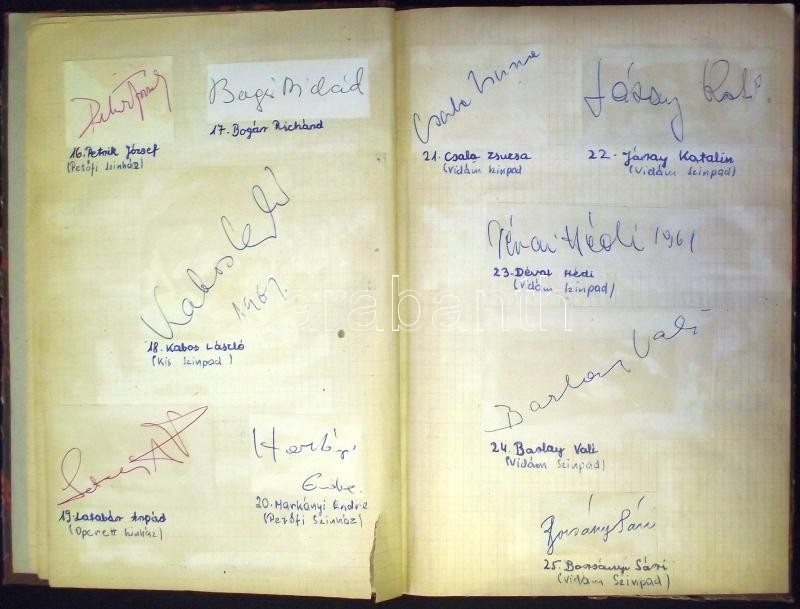 16. Petrik József
(Petőfi Szinház)
Bogár Richárd
17. Bogár Richárd
Kabos László
1961.
18. Kabos László
(Kis Szinpad)
19. Latabár Árpád
(Operett Szinház)
Endre
20. Markányi Endre
(Petőfi Szinház)
Csala Zsuzsa
21. Csala Zsuzsa
(Vidám Szinpad
Járay Kati.
22. Járay Katalin
(Vidám Szinpad)
Dévai Hédi 1961
23. Dévai Hédi
(Vidám Szinpad)
Barlay Vali
24. Barlay Vali
(Vidám Szinpad)
Borsányi Sári
25. Borsányi Sári
(Vidám Szinpad)
arabanth